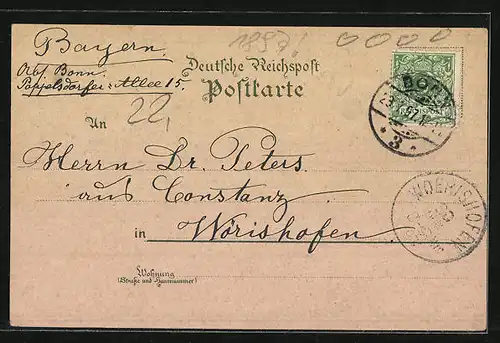 Bayern.
1897!
0000
Deutsche Reichspost
Postkarte
Abs. Bonn.
Poppelsdorfer-Allee 15.
22,
BONN
* 3 *
An
Herrn Dr. Peters.
aus Constanz
in Wörishofen
WOERISHOFEN
Wohnung
(Straße und Hausnummer)